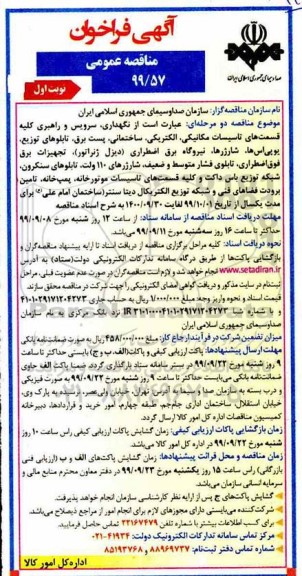 آگهی فراخوان
مناقصه عمومی
۹۹/۵۷
نوبت اول
صدا و سیمای جمهوری اسلامی ایران
نام سازمان مناقصه‌گزار: سازمان صداوسیمای جمهوری اسلامی ایران
موضوع مناقصه دو مرحله‌ای: عبارت است از نگهداری، سرویس و راهبری کلیه
قسمت‌های تاسیسات مکانیکی، الکتریکی، ساختمانی، پست برق، تابلوهای توزیع،
یوپی‌اس‌ها، شارژرها، نیروگاه برق اضطراری (دیزل ژنراتور)، تجهیزات برق
فوق‌اضطراری، تابلوی فشار متوسط و ضعیف، شارژرهای ۱۱۰ ولت، تابلوهای سنکرون،
شبکه توزیع باس داکت و کلیه قسمت‌های تاسیسات موتورخانه، پمپ‌خانه، تامین
برودت فضاهای فنی و شبکه توزیع الکتریکال دیتا سنتر (ساختمان امام علی (ع) برای
مدت یکسال از تاریخ ۹۹/۱۰/۰۱ لغایت ۱۴۰۰/۰۹/۳۰ به شرح اسناد مناقصه
مهلت دریافت اسناد مناقصه از سامانه ستاد: از ساعت ۱۲ روز شنبه مورخ ۹۹/۰۹/۰۸
حداکثر تا ساعت ۱۶ روز سه‌شنبه مورخ ۹۹/۰۹/۱۱ می‌باشد.
نحوه دریافت اسناد: کلیه مراحل برگزاری مناقصه از دریافت اسناد تا ارایه پیشنهاد مناقصه‌گران و
بازگشایی پاکت‌ها از طریق درگاه سامانه تدارکات الکترونیکی دولت(ستاد) به آدرس
www.setadiran.ir انجام خواهد شد و لازم است مناقصه‌گران در صورت عدم عضویت قبلی، مراحل
ثبت‌نام در سایت مذکور و دریافت گواهی امضای الکترونیکی را جهت شرکت در مناقصه محقق سازند
قیمت اسناد و نحوه واریز وجه: مبلغ ۱/۰۰۰/۰۰۰ ریال به حساب جاری
با شماره شبا نزد بانک مرکزی به نام سازمان
صداوسیمای جمهوری اسلامی ایران
میزان تضمین شرکت در فرآیند ارجاع کار: مبلغ ۴۵۸/۰۰۰/۰۰۰ ریال به صورت ضمانت‌نامه بانکی
مهلت ارسال پیشنهادها: پاکت ارزیابی کیفی و پاکات(الف، ب و ج) بایستی حداکثر تا ساعت
۹ روز شنبه مورخ ۹۹/۰۹/۲۲ در بستر سامانه ستاد بارگذاری گردد. ضمنا پاکت الف حاوی
ضمانت‌نامه بانکی می‌بایست حداکثر تا ساعت ۹ روز شنبه مورخ ۹۹/۰۹/۲۲ به صورت فیزیکی
و درب بسته به سازمان صداوسیما به آدرس: تهران، خیابان ولیعصر، نرسیده به پارک وی،
خیابان استقلال، ساختمان اداری جام‌جم، طبقه چهارم، امور خرید و قراردادها، دبیرخانه
کمیسیون مناقصات اداره کل امور کالا ارسال گردد.
زمان بازگشایی پاکات ارزیابی کیفی: زمان گشایش پاکات ارزیابی کیفی راس ساعت ۱۰ روز
شنبه مورخ ۹۹/۰۹/۲۲ در اداره کل امور کالا می‌باشد.
زمان مناقصه و محل قرائت پیشنهادها: زمان گشایش پاکت‌های الف و ب (ارزیابی فنی
بازرگانی) راس ساعت ۱۵ روز یکشنبه مورخ ۹۹/۰۹/۲۳ در دفتر معاون محترم منابع مالی و
سرمایه انسانی سازمان می‌باشد.
گشایش پاکت‌های ج پس از ارایه نظر کارشناسی سازمان انجام خواهد پذیرفت.
شرکت‌کننده می‌بایستی دارای مجوزهای لازم برای انجام امور از مراجع ذیصلاح می‌باشد.
برای کسب اطلاعات بیشتر با شماره تلفن ۲۲۱۶۷۴۷۹ تماس حاصل فرمایید.
مرکز تماس سامانه تدارکات الکترونیک دولت: ۴۱۹۳۴-۰۲۱
شماره تماس دفتر ثبت‌نام: ۸۸۹۶۹۷۳۷ و ۸۵۱۹۳۷۶۸
اداره کل امور کالا